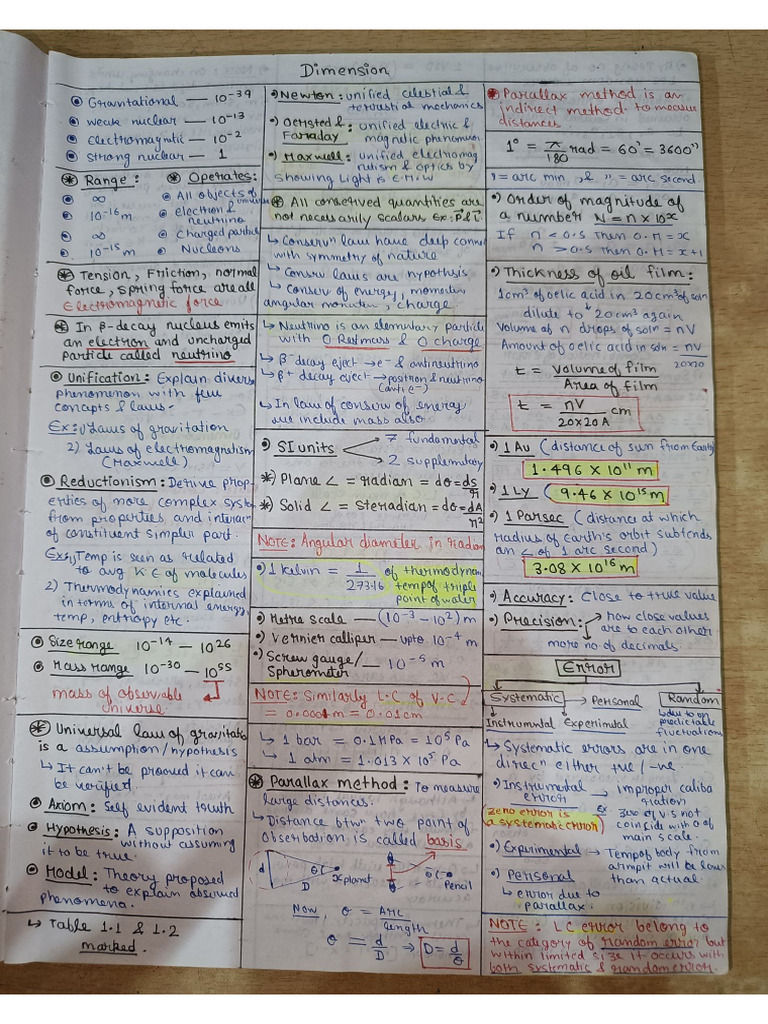 Dimension
⊛ Gravitational — 10⁻³⁹
⊛ weak nuclear — 10⁻¹³
⊛ Electromagnetic — 10⁻²
⊛ strong nuclear — 1
⊛ Range :
⊛ ∞
⊛ 10⁻¹⁶ m
⊛ ∞
⊛ 10⁻¹⁵ m
⊛ Operates:
⊛ All objects of universe
⊛ electron & neutrino
⊛ Charged particle
⊛ Nucleons
⊛ Tension, Friction, normal
force, spring force are all
Electromagnetic force
⊛ In β-decay nucleus emits
an electron and uncharged
particle called neutrino
⊛ Unification: Explain divers
phenomenon with few
concepts & laws-
Ex: 1) Laws of gravitation
2) Laws of electromagnetism
(Maxwell)
⊛ Reductionism: Derive prop-
erties of more complex system
from properties, and interac
of constituent simpler part.
Ex: 1) Temp is seen as related
to avg K.E of molecules
2) Thermodynamics explained
in terms of internal energy,
temp, entropy etc.
⊛ Size range 10⁻¹⁴ — 10²⁶
⊛ Mass range 10⁻³⁰ — 10⁵⁵
mass of observable
universe
⊛ Universal law of gravitatio
is a assumption/hypothesis
↳ It can't be prooved it can
be verified.
⊛ Axiom: Self evident truth
⊛ Hypothesis: A supposition
without assuming
it to be true.
⊛ Model: Theory proposed
to explain observed
phenomena.
↳ Table 1.1 & 1.2
marked.
•) Newton: unified celestial &
terrestrial mechanics
•) Oersted & Faraday: unified electric &
magnetic phenomenon
•) Maxwell: unified electromag
netism & optics by
showing Light is E.M.W
⊛ All conserved quantities are
not necessarily scalars Ex: P⃗ & L⃗
↳ Conserv" law have deep connec
with symmetry of nature
↳ Conserv laws are hypothsis
↳ Conserv of energy, momentum
angular momentum, charge
↳ Neutrino is an elementary particle
with 0 Restmass & 0 charge
↳ β⁻ decay eject → e⁻ & antineutrino
↳ β+ decay eject → position & neutrino
(anti e⁻)
↳ In law of conserv of energy
we include mass also
•) SI units
7 fundamental
2 supplementary
⊛) Plane ∠ = radian = dθ = ds/r
⊛) Solid ∠ = Steradian = dθ = dA/r²
NOTE: Angular diameter in radian
•) 1 kelvin = 1/273.16 of thermodynam
temp of triple
point of water
•) Metre scale — (10⁻³ – 10²) m
•) Vernier calliper — upto 10⁻⁴ m
•) Screw gauge/
Spherometer — 10⁻⁵ m
NOTE: Similarly L.C of V.C
= 0.0001 m = 0.01 cm
↳ 1 bar = 0.1 MPa = 10⁵ Pa
↳ 1 atm = 1.013 × 10⁵ Pa
⊛ Parallax method: To measure
large distances.
↳ Distance btw two point of
observation is called basis
d θ D planet
Pencil
Now, θ = Arc/length
θ = d/D ⇒ D = d/θ
⊛ Parallax method is an
indirect method to measure
distances
1° = π/180 rad = 60' = 3600''
' = arc min, & '' = arc second
•) Order of magnitude of
a number N = n × 10ˣ
If n < 0.5 then O.M = x
n > 0.5 then O.M = x+1
•) Thickness of oil film:
1cm³ of oelic acid in 20cm³ of soln
dilute to ↓ 20cm³ again
Volume of n drops of soln = nV
Amount of oelic acid in soln = nV/20x20
t = volume of film/Area of film
t = nV/20x20 A cm
•) 1 Au (distance of sun from Earth)
1.496 × 10¹¹ m
•) 1 Ly (9.46 × 10¹⁵ m
•) 1 Parsec (distance at which
radius of Earth's orbit subtends
an ∠ of 1 arc second)
3.08 × 10¹⁶ m
•) Accuracy: Close to true value
•) Precision: → how close values
are to each other
more no of decimals.
Error
Systematic → Personal Random
Instrumntal Experimetal
↳ due to unpredictable
fluctuation
↳ Systematic errors are in one
direc" either +ve / -ve.
•) Instrumental error → improper caliba
ration
zero error is
a systematic error
Ex zero of v.s not
coinside with 0 of
main scale.
•) Experimental → Temp of body from
armpit will be less
than actual.
•) Personal
↳ error due to
parallax.
NOTE: LC error belong to
the category of random error but
within limited size it occurs with
both systematic & random error.